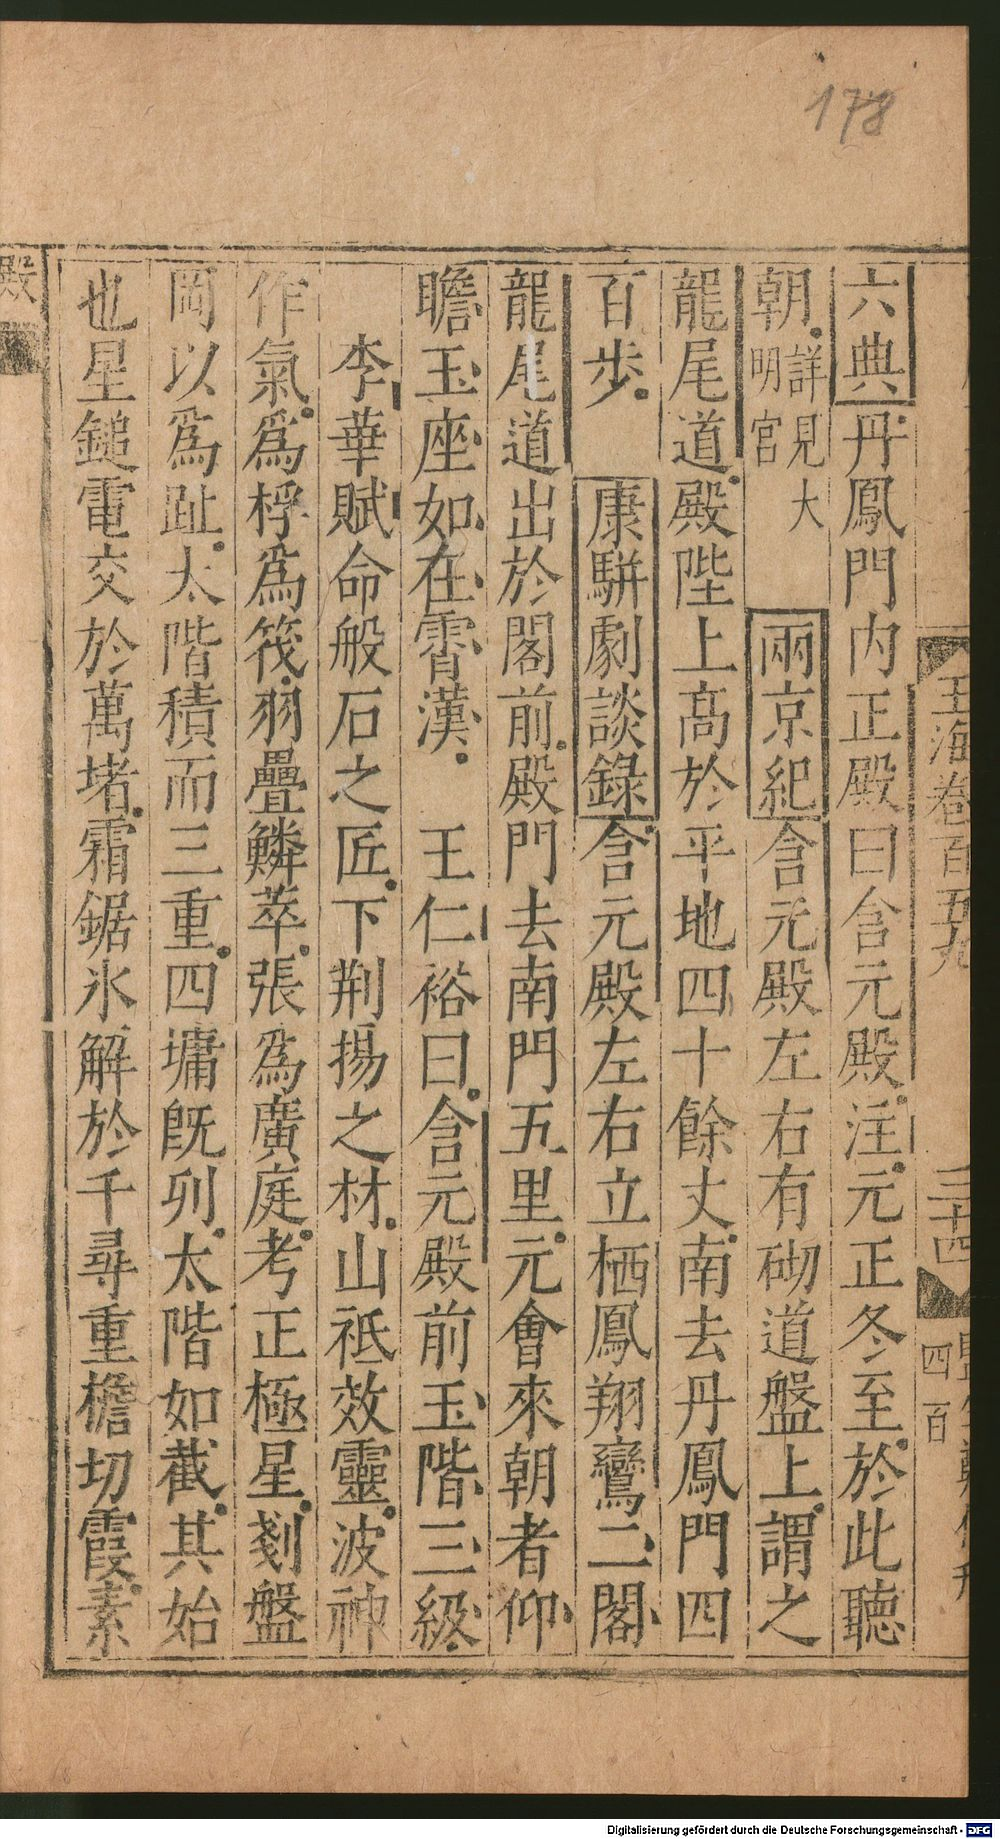 178
玉海卷百五九
三十四
四百
六典丹鳳門内正殿曰含元殿注元正冬至於此聽
朝詳見大明宮 兩京紀含元殿左右有砌道盤上謂之
龍尾道殿陛上高於平地四十餘丈南去丹鳳門四
百步 康駢劇談錄含元殿左右立栖鳳翔鸞二閣
龍尾道出於閣前殿門去南門五里元會來朝者仰
瞻玉座如在霄漢 王仁裕曰含元殿前玉階三級
李華賦命般石之匠下荆揚之材山祗效靈波神
作氣爲桴爲筏羽疊鱗萃張爲廣庭考正極星剗盤
岡以爲趾太階積而三重四墉既列太階如截其始
也星鎚電交於萬堵霜鋸氷解於千尋重檐切霞素
殿
Digitalisierung gefördert durch die Deutsche Forschungsgemeinschaft - DFG